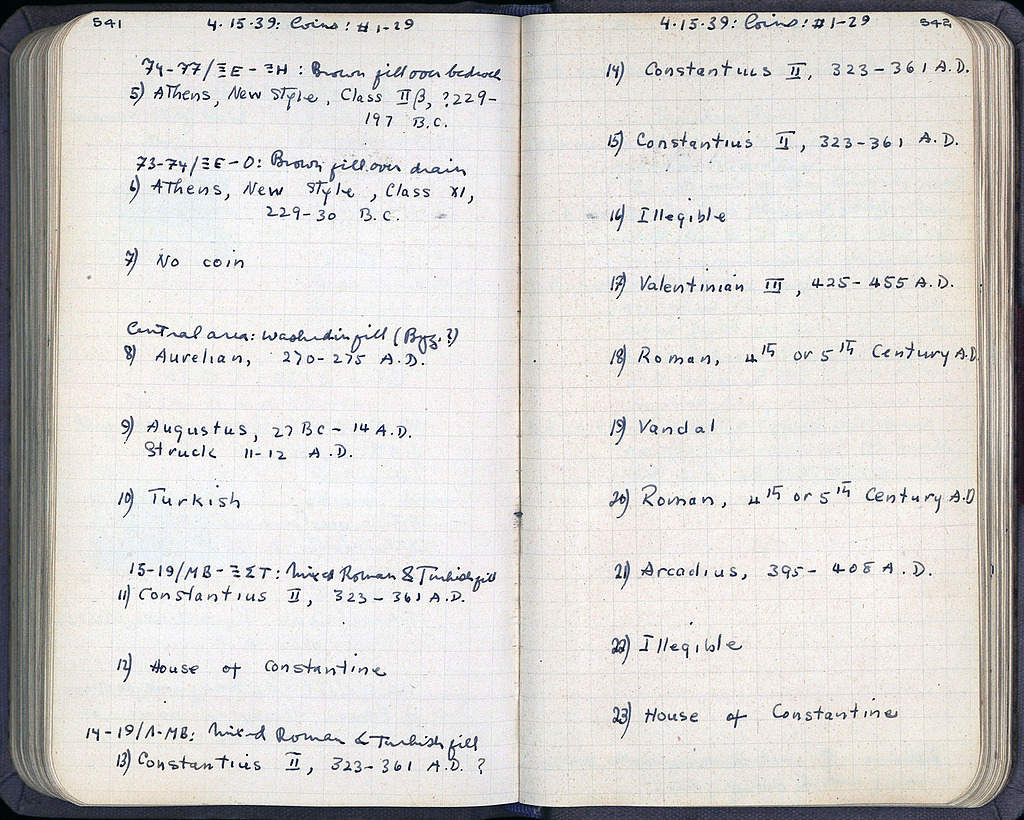 541
4.15.39: Coins: #1-29
74-77/ΞE-ΞH: Brown fill over bedrock
5) Athens, New Style, Class IIβ, ?229-
197 B.C.
73-74/ΞE-O: Brown fill over drain
6) Athens, New Style, Class XI,
229-30 B.C.
7) No coin
Central area: washed in fill (Byz.?)
8) Aurelian, 270-275 A.D.
9) Augustus, 27 BC - 14 A.D.
Struck 11-12 A.D.
10) Turkish
15-19/MB-ΞΣT: Mixed Roman & Turkish fill
11) Constantius II, 323-361 A.D.
12) House of Constantine
14-19/Λ-MB: Mixed Roman & Turkish fill
13) Constantius II, 323-361 A.D. ?
4.15.39: Coins: #1-29
542
14) Constantius II, 323-361 A.D.
15) Constantius II, 323-361 A.D.
16) Illegible
17) Valentinian III, 425-455 A.D.
18) Roman, 4th or 5th Century A.D.
19) Vandal
20) Roman, 4th or 5th Century A.D
21) Arcadius, 395-408 A.D.
22) Illegible
23) House of Constantine